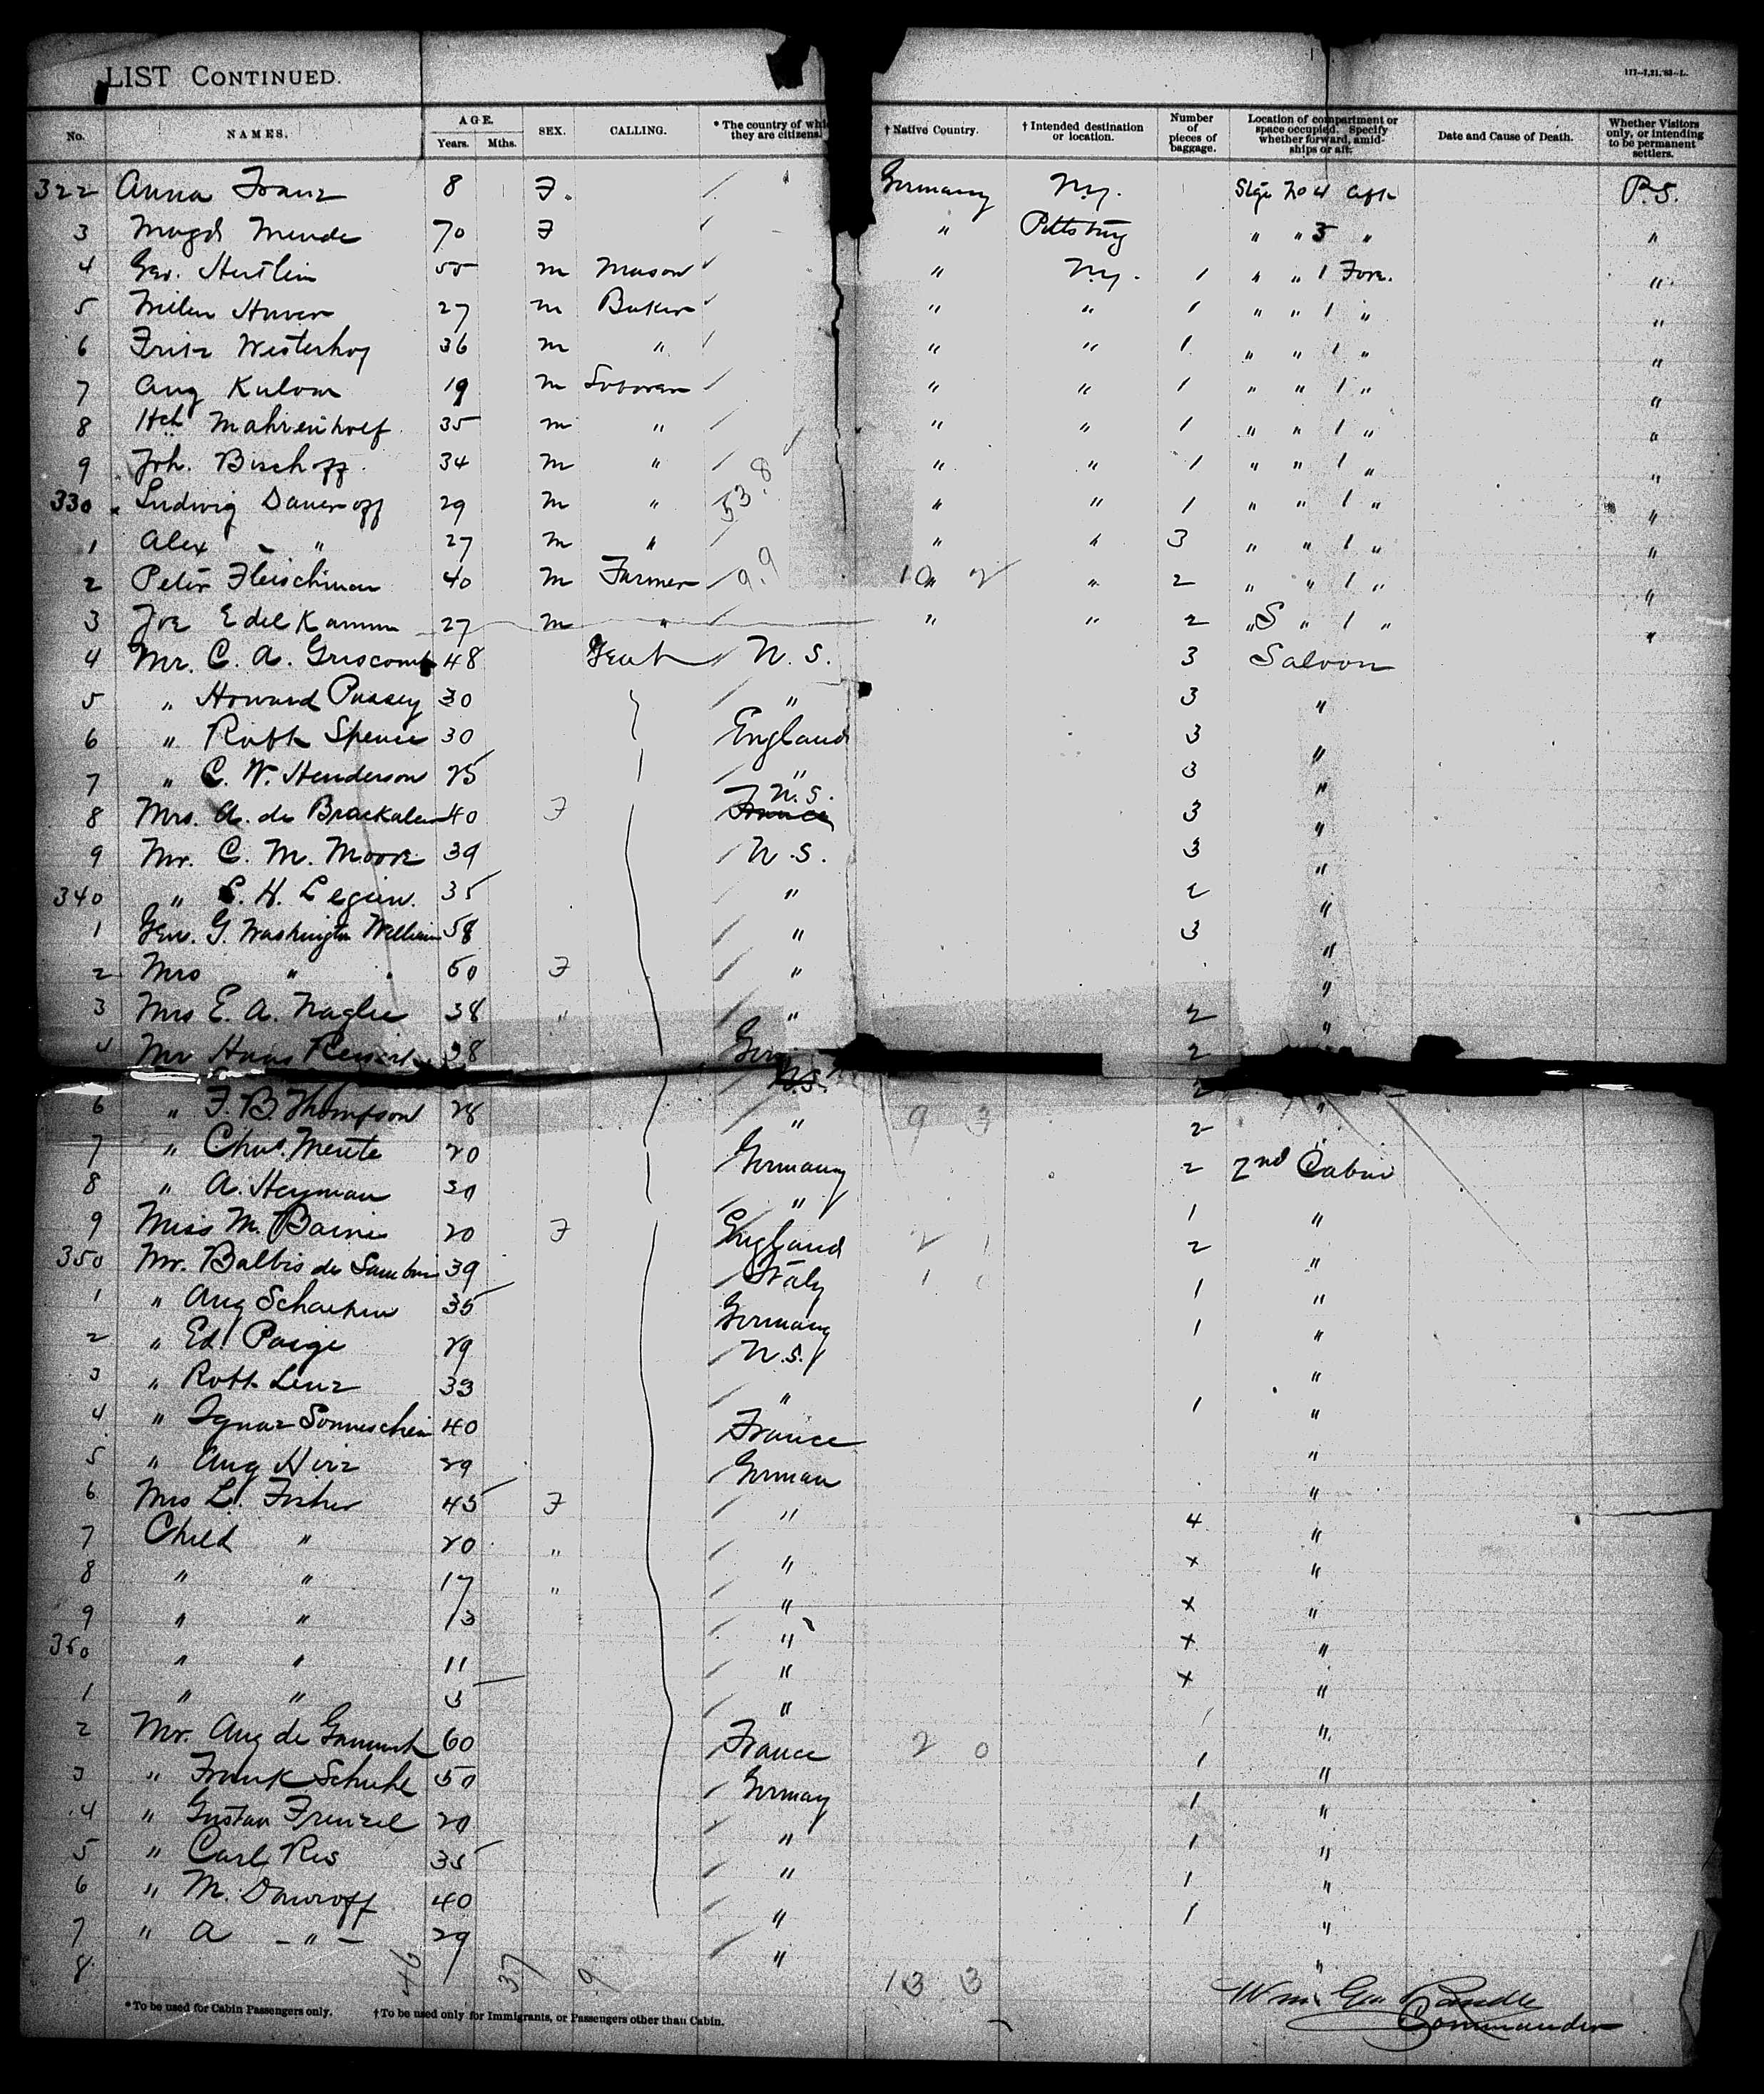 LIST CONTINUED.
117—7,21,'88—L.
No. NAMES. AGE. Years. Mths. SEX. CALLING. * The country of they are citizens. † Native Country. † Intended destination or location. Number of pieces of baggage. Location of compartment or space occupied. Specify whether forward, amidships or aft. Date and Cause of Death. Whether Visitors only, or intending to be permanent settlers.
322 Anna Franz 8 F. Germany N.Y. Stge No 4 aft P.S.
3 Magd Mende 70 F " Pittsburg " " 3 " "
4 Geo. Hertlein 55 m Mason " N.Y. 1 " " 1 Fore. "
5 27 m Baker " " 1 " " 1 " "
6 Fritz Westerhof 36 m " " " 1 " " 1 " "
7 Aug 19 m " " 1 " " 1 " "
8 Hch Mahrenholf 35 m " " " 1 " " 1 " "
9 Joh. Bischoff 34 m " " " 1 " " 1 " "
330 Ludwig 29 m " " " 1 " " 1 " "
1 Alex " 27 m " " " 3 " " 1 " "
2 Peter Fleischman 40 m Farmer " " 2 " " 1 " "
3 Joe Edelkamm 27 m " " " 2 "S " 1 " "
4 Mr. C. A. Griscom 48 Gent U.S. 3 Saloon
5 " Howard Pussey 30 " 3 "
6 " Robt Spence 30 England 3 "
7 " C. W. Henderson 25 " 3 "
8 Mrs. A. de 40 F France U.S. 3 "
9 Mr. C. M. Moore 39 U.S. 3 "
340 " H. Legien. 35 " 2 "
1 Gen. G. Washington William 58 " 3 "
2 Mrs " 50 F " "
3 Mrs E. A. Naglee 38 " " 2 "
4 Mr Haas 38 2 "
U.S. 2
6 " F. B. Thompson 28 " 2 "
7 " Chas. Mente 20 Germany 2 2nd Cabin
8 " A. Heyman 30 " 1 "
9 Miss M. 20 F England 2 "
350 Mr. Balbis de 39 Italy 1 "
1 " Aug 35 Germany 1 "
2 " Ed. Paige 29 U.S. "
3 " Robt Lenz 33 " 1 "
4 " Ignaz Sonneschein 40 France "
5 " Aug Hirz 29 German "
6 Mrs L. Fisher 45 F " 4 "
7 Child " 20 " " x "
8 " " 17 " " x "
9 " " 13 " x "
360 " " 11 " x "
1 " " 5 " "
2 Mr. Aug de 60 France 1 "
3 " Frank 50 Germany 1 "
4 " Gustav Frenzel 20 " 1 "
5 " Carl Ris 35 " 1 "
6 " M. 40 " 1 "
7 " A — " — 29 " "
8
46 37 9 13 3
Wm. Geo. Randle
Commander
* To be used for Cabin Passengers only. † To be used only for Immigrants, or Passengers other than Cabin.